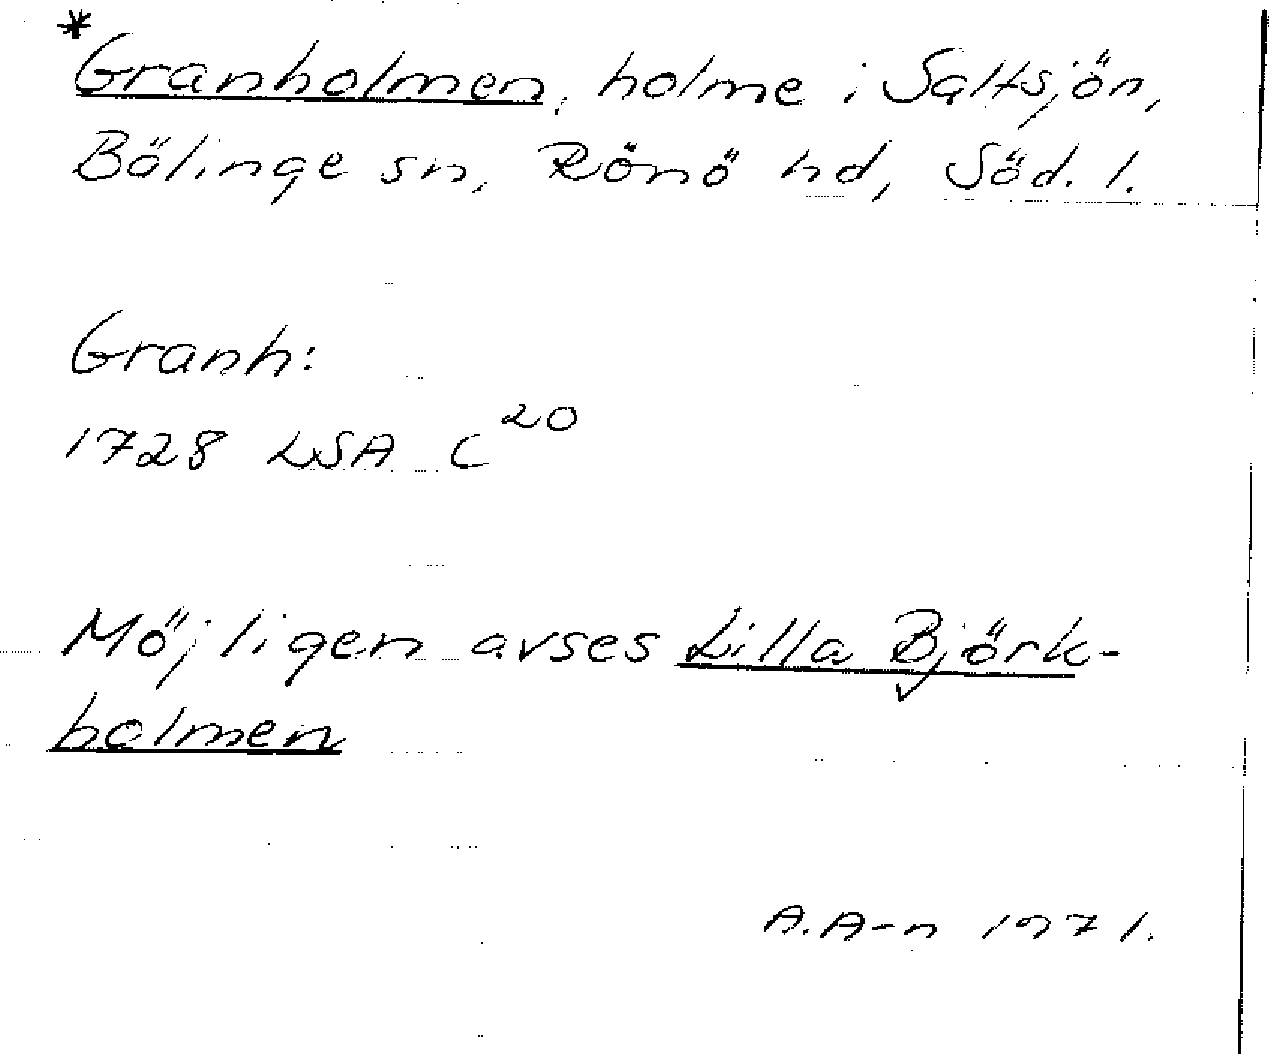 *
Granholmen, holme i Saltsjön,
Bälinge sn, Rönö hd, Söd. l.
Granh:
1728 LSA C 20
Möjligen avses Lilla Björk-
holmen
A. A-n 1971.